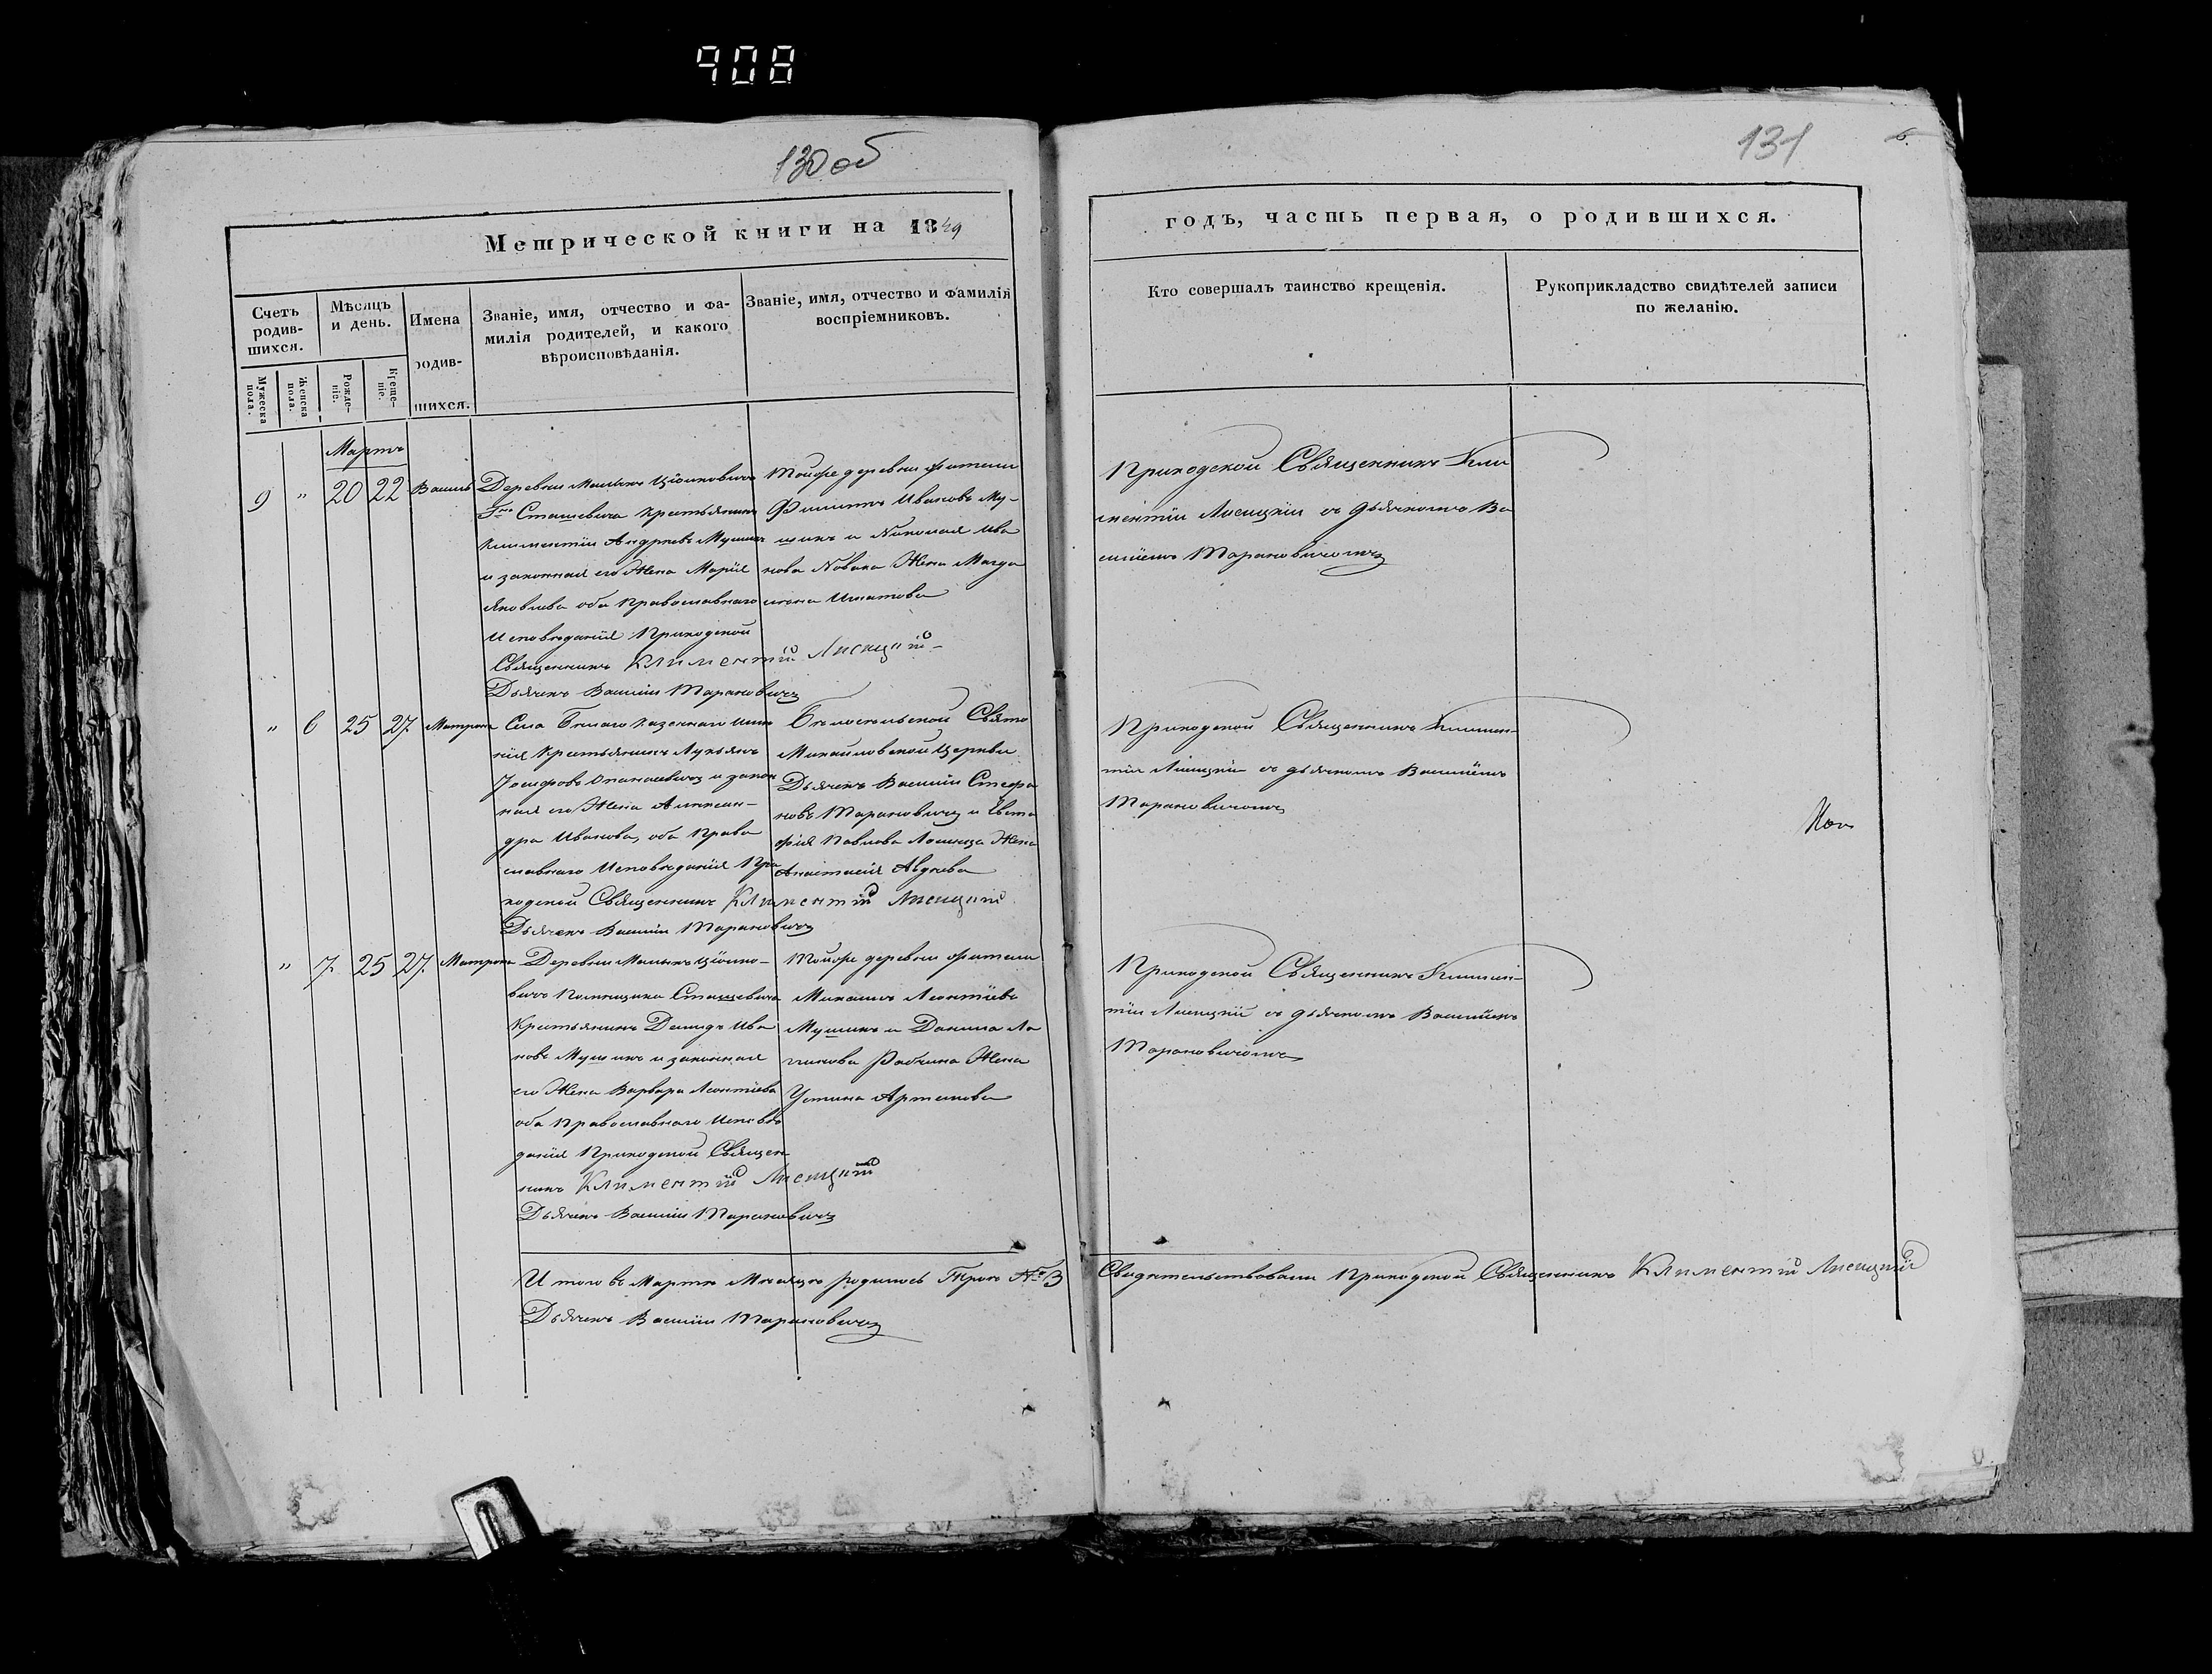 908
130 об
131
6.
Метрической книги на 1849
годъ, часть первая, о родившихся.
Счетъ родив-
шихся.
Мѣсяцъ
и день.
Имена
родив-
шихся.
Званіе, имя, отчество и фа-
милія родителей, и какого
вѣроисповѣданія.
Званіе, имя, отчество и фамилія
воспріемниковъ.
Кто совершалъ таинство крещенія.
Рукоприкладство свидѣтелей записи
по желанію.
Мужеска
пола.
Женска
пола.
Рожде-
ніе.
Креще-
ніе.
Мартъ
9 " 20 22 Василь
Деревни Малыхъ
Г-на Сташевича крестьянинъ
Климентій Андреевъ Мушикъ
и законная его Жена Марія
Яковлева оба Православнаго
Исповѣданія Приходской
Священникъ Климентій Лисицкій
Дьячекъ Василій Тарановичъ
Тойже деревни жители
Филиппъ Ивановъ Му-
шикъ и Николая Ива
нова Новака Жена Магда
лена Игнатова
Приходской Священникъ Кли
ментій Лисицкій съ дьячкомъ Ва
силіемъ Тарановичомъ
" 6 25 27 Матрона
Села Бѣлаго казеннаго имѣ
нія Крестьянинъ Лукьянъ
Іосифовъ Опанасевичъ и закон
ная его Жена Алексан-
дра Иванова, оба Право
славнаго Исповѣданія При
ходской Священникъ Климентій Лисицкій
Дьячекъ Василій Тарановичъ
Бѣлосельской Свято
Михайловской Церкви
Дьячекъ Василій Стефа
новъ Тарановичъ и Евста
фія Павлова Жена
Анастасія Авдѣева
Приходской Священникъ Климен-
тій Лисицкій съ дьячкомъ Василіемъ
Тарановичомъ
" 7 25 27 Матрона
Деревни Малыхъ
вичъ Помѣщика Сташевича
Крестьянинъ Демидъ Ива
новъ Мушикъ и законная
его Жена Варвара Леонтіева
оба Православнаго Исповѣ
данія Приходской Священ
никъ Климентій Лисицкій
Дьячекъ Василій Тарановичъ
Тойже деревни жители
Михаилъ Леонтіевъ
Мушикъ и Данила Ло
гинова Рабчина Жена
Устина Артемова
Приходской Священникъ Климен-
тій Лисицкій съ дьячкомъ Василіемъ
Тарановичомъ
Итого въ Мартѣ Мѣсяцѣ родилось Трое № 3
Свидѣтельствовали Приходской Священникъ Климентій Лисицкій
Дьячекъ Василій Тарановичъ